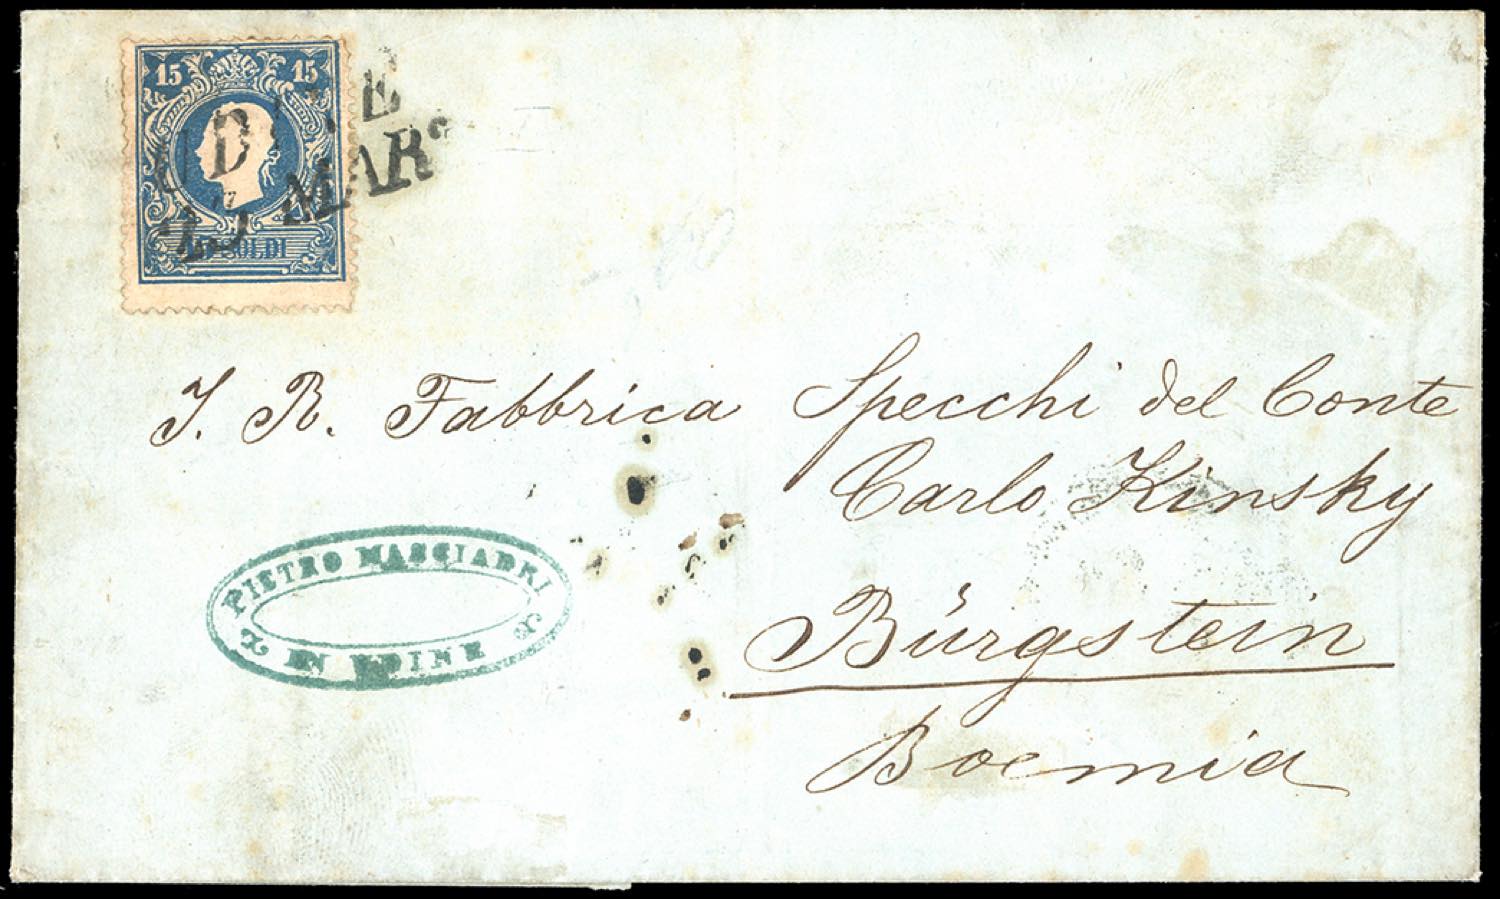 15 15
UDINE
23 MAR.º
15 SOLDI
I. R. Fabbrica Specchi del Conte
Carlo Kinsky
Bürgstein
Boemia
PIETRO MASCIADRI
IN UDINE